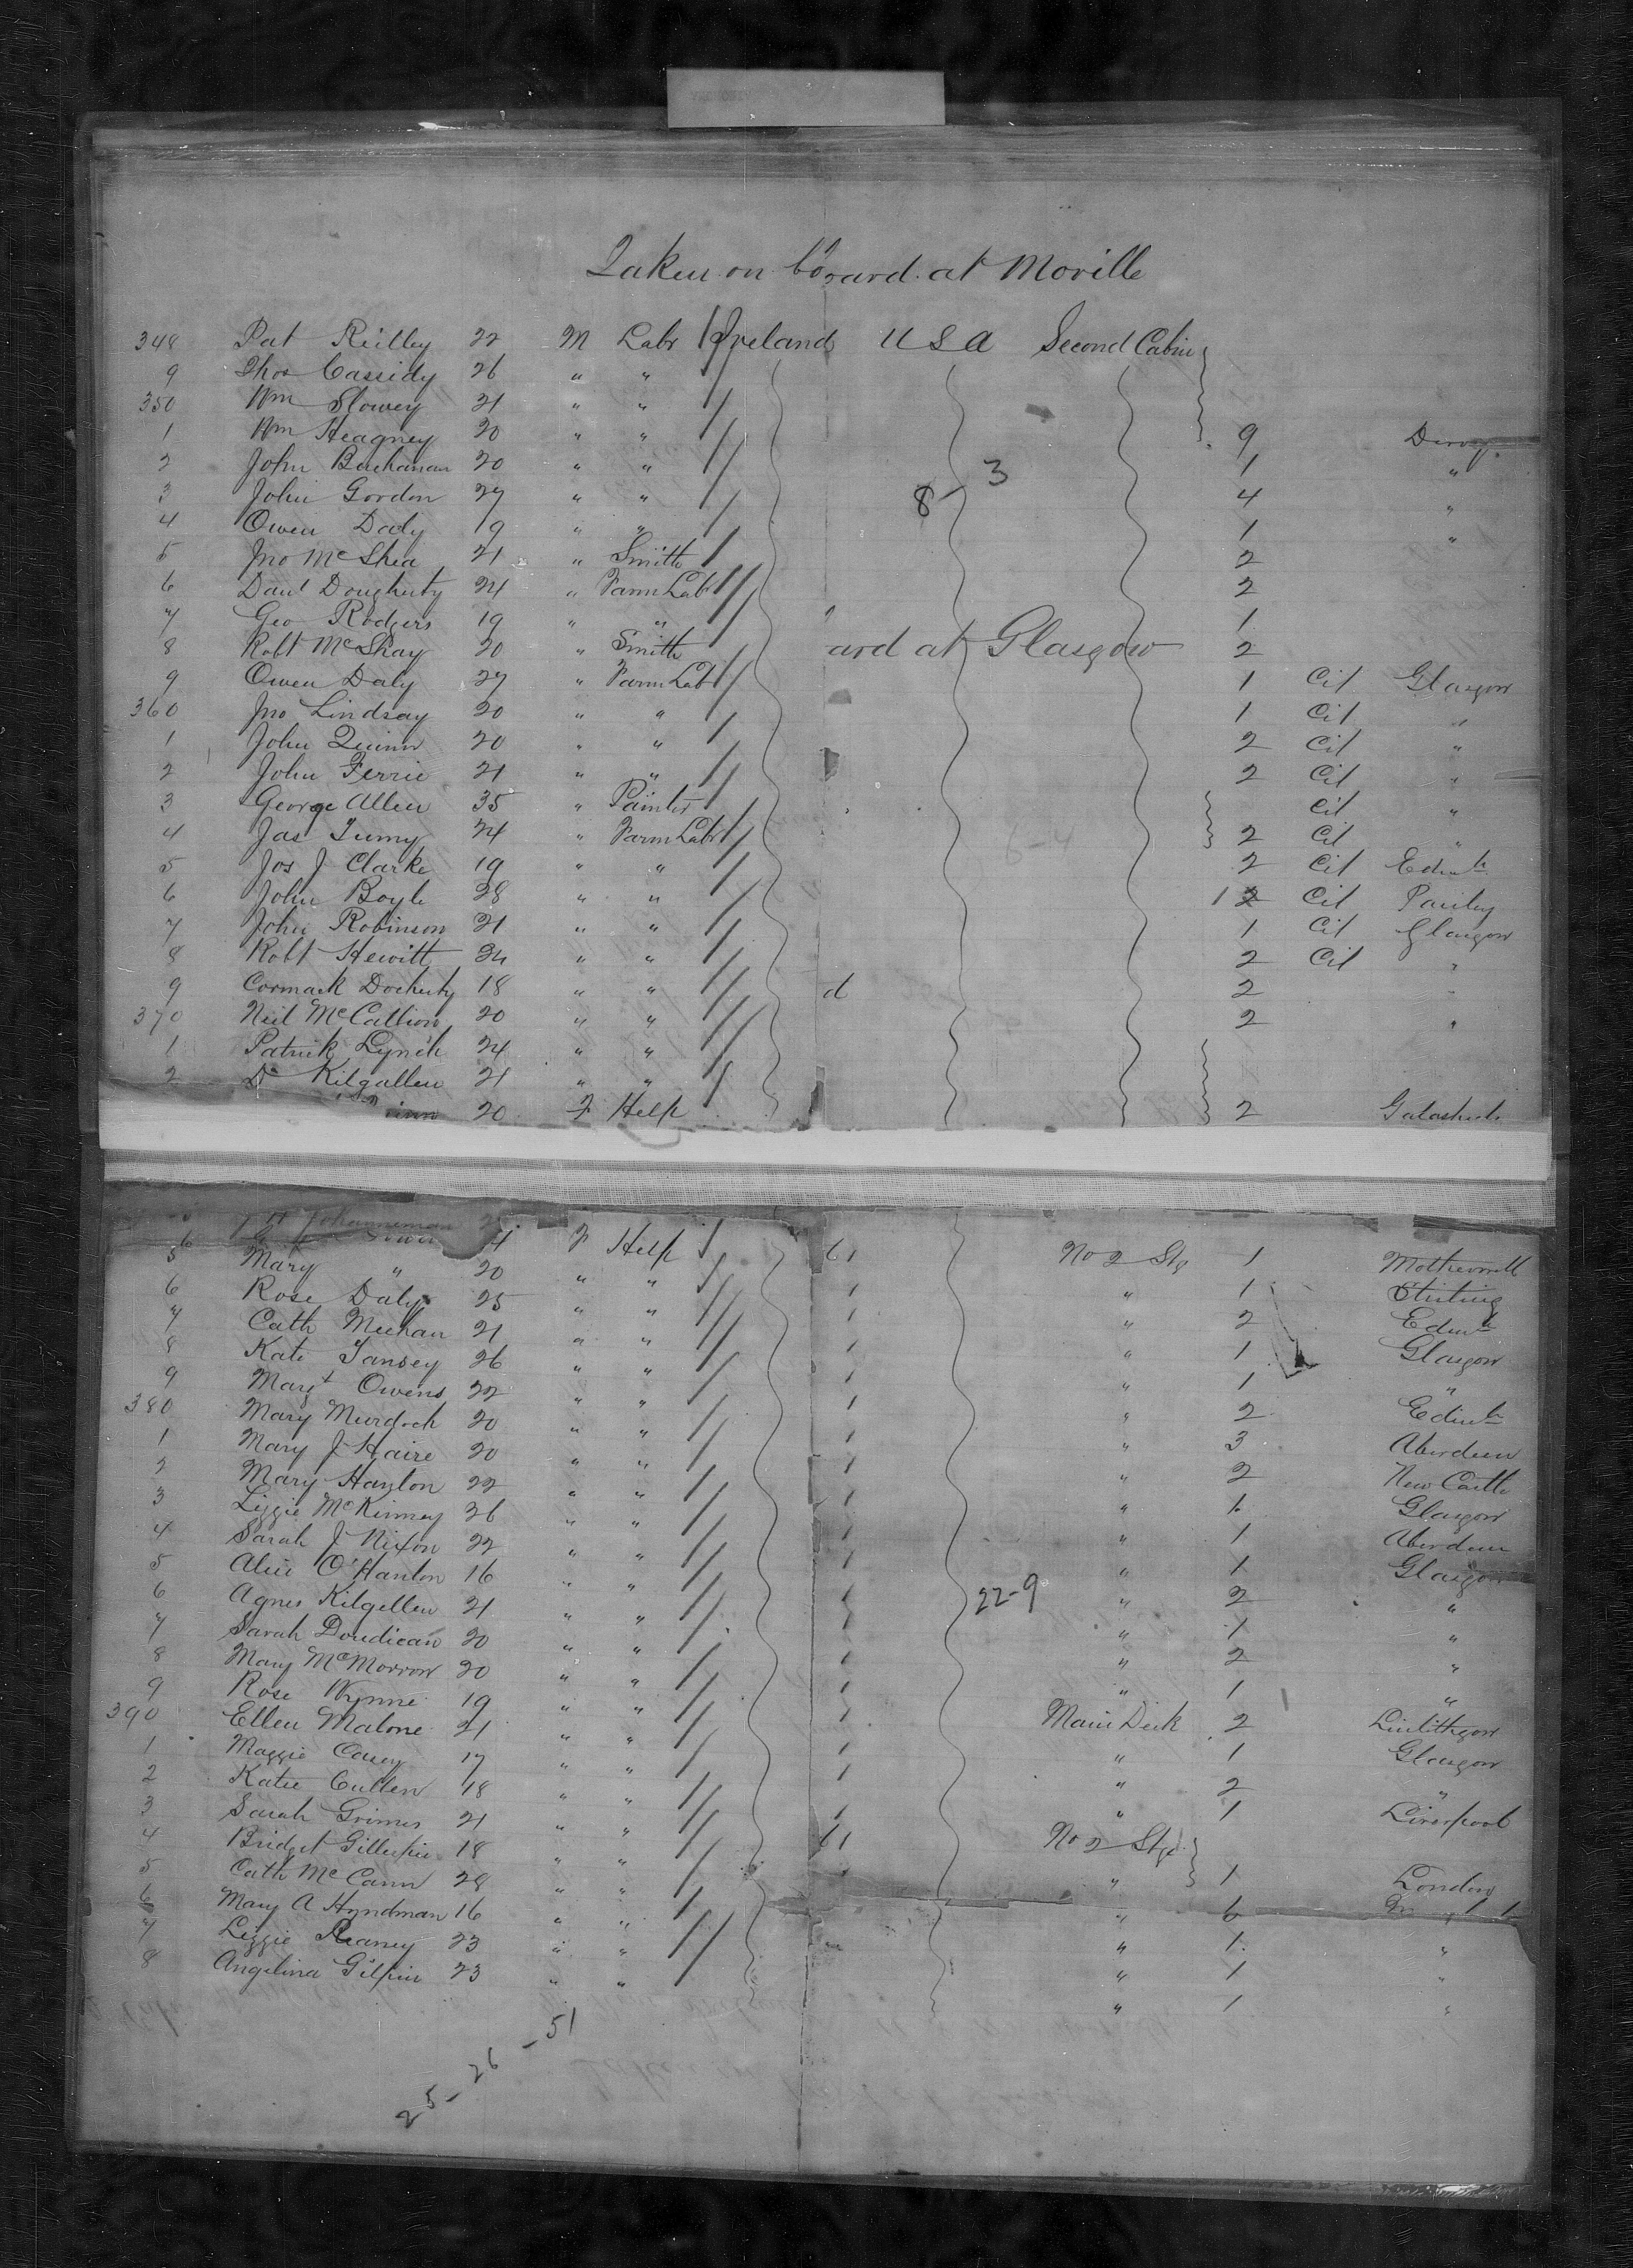 Taken on board at Moville
348 Pat Reilley 22 M Labr Ireland USA Second Cabin
9 Thos Cassidy 26 " "
350 Wm Slowey 21 " "
1 Wm Heagney 20 " " 9 Derry
2 John Buchanan 20 " " 1 "
3 John Gordon 27 " " 8-3 4 "
4 Owen Daly 19 " " 1 "
5 Jno McShea 21 " Smith 2
6 Danl Dougherty 24 " Farm Labr 2
7 Geo Rodgers 19 " " 1
8 Robt McShay 20 " Smith ard at Glasgow 2
9 Owen Daly 27 " Farm Labr 1 Cit Glasgow
360 Jno Lindsay 20 " " 1 Cit "
1 John Quinn 20 " " 2 Cit "
2 John Ferrie 21 " " 2 Cit "
3 George Allen 35 " Painter Cit "
4 Jas 24 " Farm Labr 6-4 2 Cit "
5 Jos J Clarke 19 " " 2 Cit Edinh
6 John Boyle 28 " " 1 2 Cit Paisley
7 John Robinson 21 " " 1 Cit Glasgow
8 Robt Hewitt 34 " " 2 Cit "
9 Cormack Docherty 18 " " d 2 "
370 Neil McCallion 20 " " 2 "
1 Patrick Lynch 24 " "
2 D Kilgallen 21 " "
20 F Help 2 Galashiels
F Help 61 No 2 Stg 1 Motherwell
5 Mary " 20 " " 1 " 1 Stirling
6 Rose Daly 25 " " 1 " 2 Edinh
7 Cath Meehan 21 " " 1 " 1 Glasgow
8 Kate Tansey 26 " " 1 " 1 "
9 Margt Owens 22 " " 1 " 2 Edinh
380 Mary Murdoch 20 " " 1 " 3 Aberdeen
1 Mary J Haire 20 " " 1 " 2 New Castle
2 Mary Hanlon 22 " " 1 " 1 Glasgow
3 Lizzie McKinney 26 " " 1 " 1 Aberdeen
4 Sarah J Nixon 22 " " 1 " 1 Glasgow
5 Alice O'Hanlon 16 " " 1 22-9 " 2 "
6 Agnes Kilgellen 21 " " 1 " 1 "
7 Sarah Doudican 20 " " 1 " 2 "
8 Mary McMorrow 20 " " 1 " 1 "
9 Rose Wynne 19 " " 1 Main Deck 2 Linlithgow
390 Ellen Malone 21 " " 1 " 1 Glasgow
1 Maggie Casey 17 " " 1 " 2 "
2 Katie Cullen 18 " " 1 " 1 Liverpool
3 Sarah Grimes 21 " " 61 No 2 Stge
4 Bridget Gillespie 18 " " 1 " 1 London
5 Cath McCann 28 " " " 6
6 Mary A Hyndman 16 " " " 1 "
7 Lizzie Reaney 23 " " " 1 "
8 Angelina Gilpin 23 " " " 1 "
25-26-51